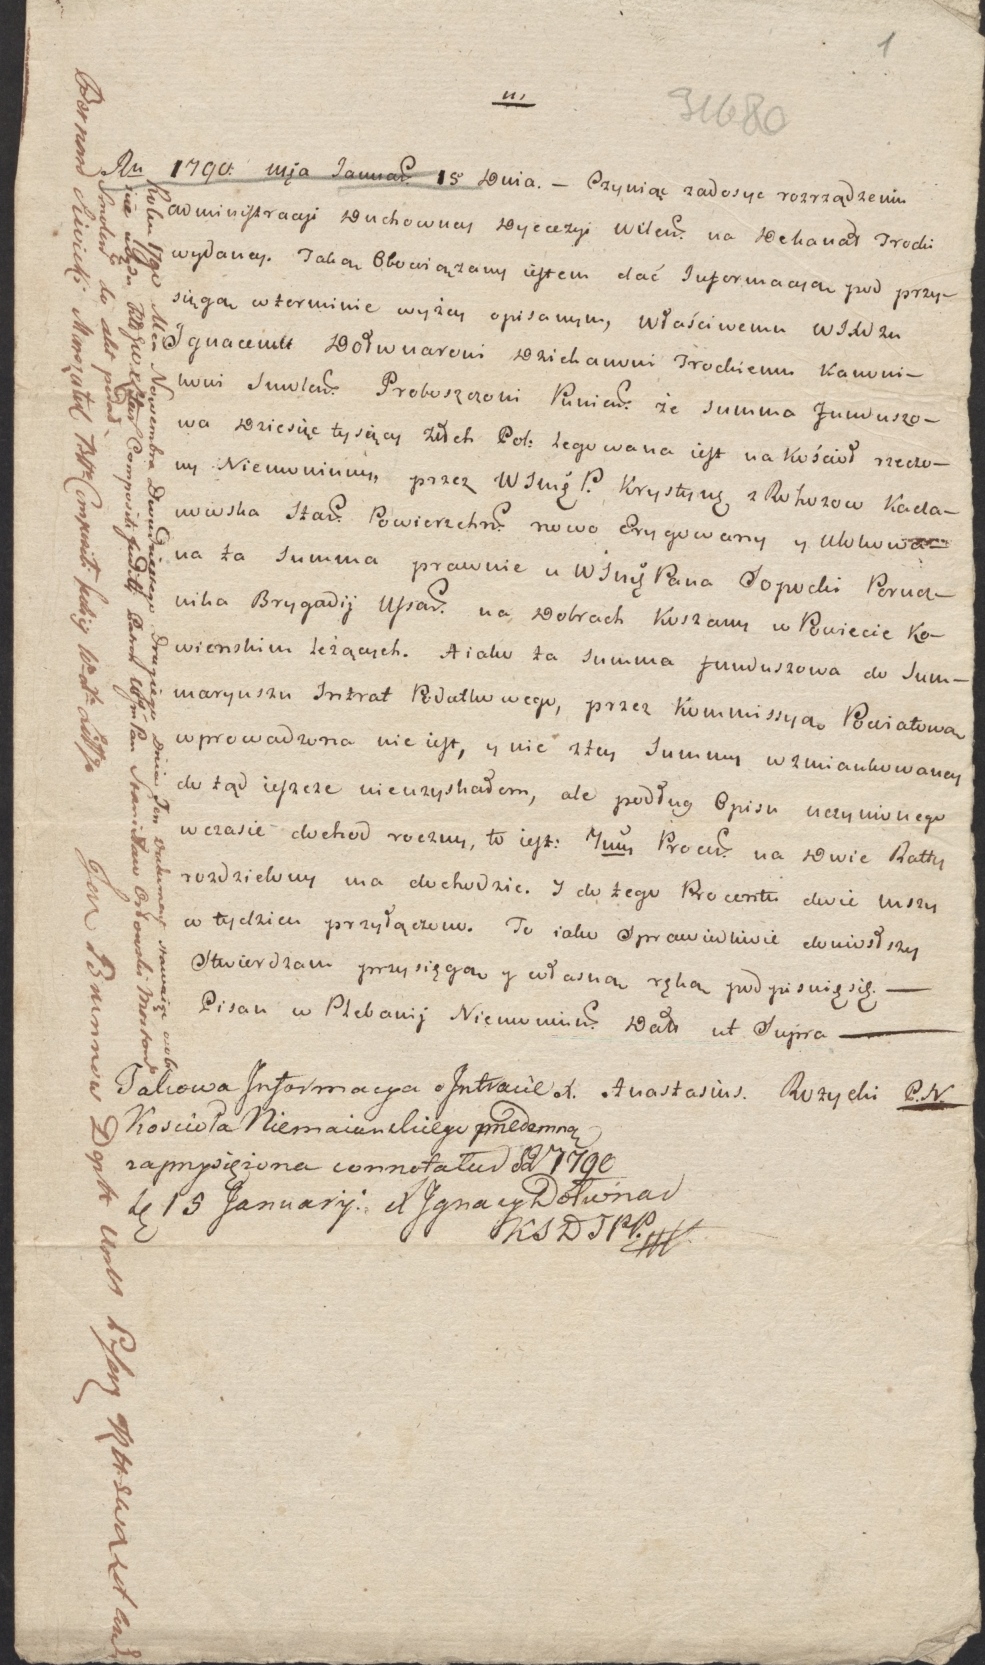 1
31680
An 1790. mja Januar. 15 Dnia. — Czyniąc zadosyc rozrządzeniu
administracji Duchowney Dyecezyi Wilen. na Dekanat Trocki
wydaney. Taką Obowiązany iestem dać Informacyą pod przy-
sięgą w terminie wyżey opisanym, Właściwemu
Ignacemu Dołwnarowi Dziekanowi Trockiemu Kanoni-
kowi Smolen. Proboszczowi Punien. że Summa Funduszo-
wa Dziesięć tysięcy Złłch Pol: legowana iest na Kościoł rzeczo-
ny Niemoniuny, przez WJmę P. Krystynę z Kada-
nowo Erygowany y Ulokowa-
na ta Summa prawnie u WJmę Pana Sopocki Poruc-
nika Brygadij na Dobrach Koszany w Powiecie Ko-
wienskim leżących. A iako ta Summa funduszowa do Sum-
maryuszu Intrat Podatkowego, przez Kommissyą Powiatową
wprowadzona nie iest, y nic z tey Summy wzmiankowaney
do tąd ieszcze nieuzyskałem, ale podług Opisu uczynionego
w czasie dochod roczny, to iest: Procen. na Dwie Ratty
rozdzielony ma dochodzic. I do tego Procentu dwie mszy
w tydzien przyłączono. To iako Sprawiedliwie doniosłszy
Stwierdzam przysięgą y własną ręką podpisuię się. —
Pisan w Plebanij Niemoniun. Datt ut Supra —
Takowa Informacya o Intracie X. Anastasius. Rożycki P.N.
Koscioła Niemaiunskiego przedemną
zaprzysiężona connotatur 1790
15 Januarij: X Ignacy Dołwnar
KSDTPP.
Roku 1790 Mca Novembra Dwudziestego Drugiego Dnia Ten Dokument stawaiąc
Compositi Judicij Pan Stanisław
do akt podał
Bernard Marszałek Compositi Judicij
Jan